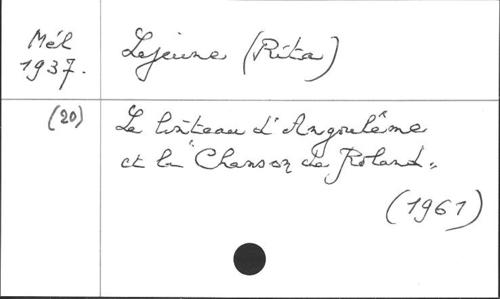 Mél
1937.
Lejeune (Rita)
(20)
Le linteau d'Angoulême
et la "Chanson de Roland"
(1961)